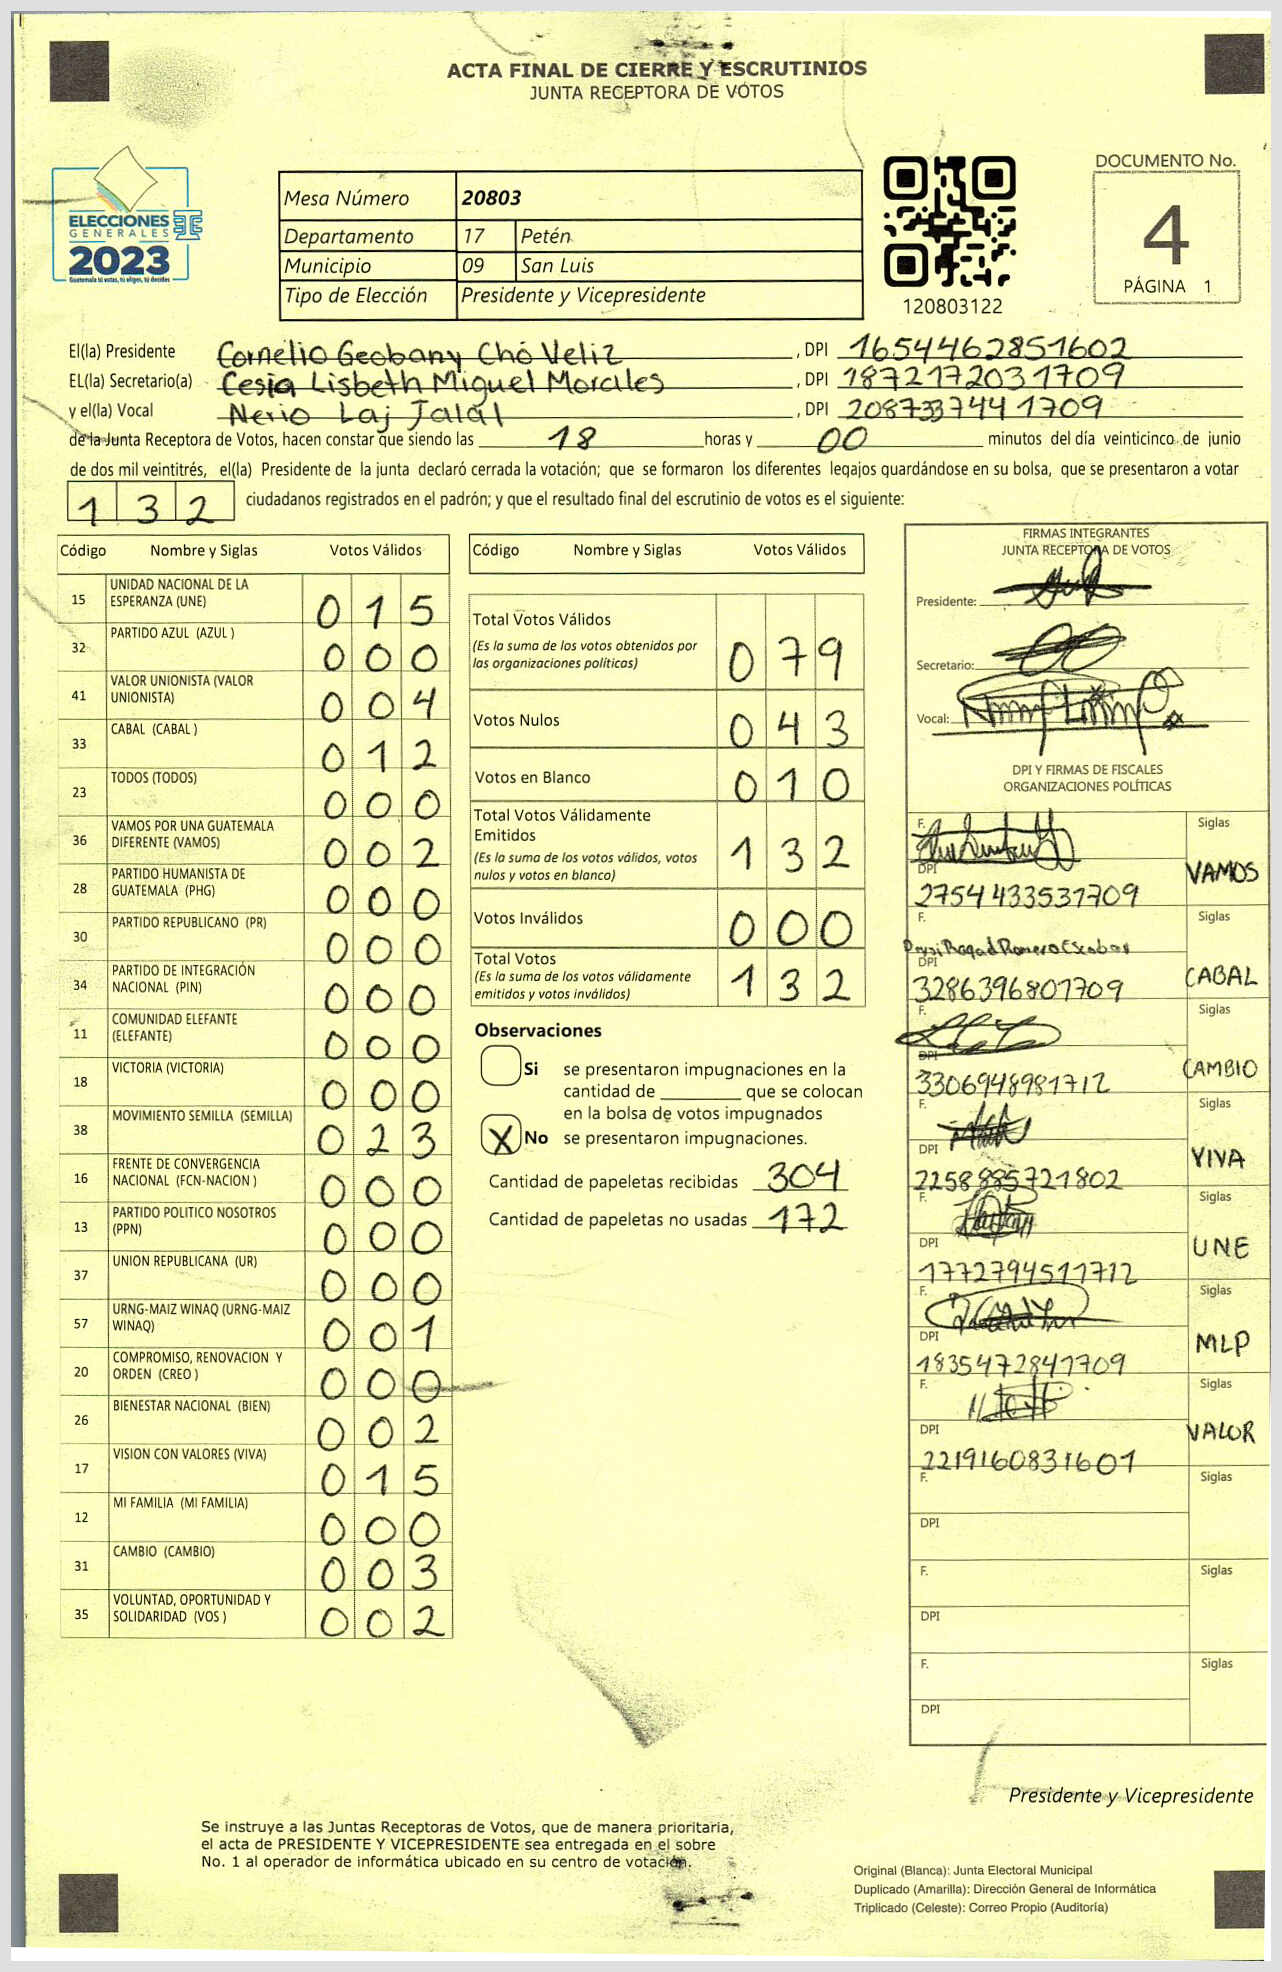 ACTA FINAL DE CIERRE Y ESCRUTINIOS
JUNTA RECEPTORA DE VOTOS
ELECCIONES
GENERALES
2023
Guatemala tú votas, tú eliges, tú decides
Mesa Número 20803
Departamento 17 Petén
Municipio 09 San Luis
Tipo de Elección Presidente y Vicepresidente
120803122
DOCUMENTO No.
4
PÁGINA 1
El(la) Presidente Cornelio Geobany Chó Veliz, DPI 1654462851602
EL(la) Secretario(a) Cesia Lisbeth Miguel Morales, DPI 1872172031709
y el(la) Vocal Nerio Laj Jalal, DPI 2087337441709
de la Junta Receptora de Votos, hacen constar que siendo las 18 horas y 00 minutos del día veinticinco de junio
de dos mil veintitrés, el(la) Presidente de la junta declaró cerrada la votación; que se formaron los diferentes legajos guardándose en su bolsa, que se presentaron a votar
132 ciudadanos registrados en el padrón; y que el resultado final del escrutinio de votos es el siguiente:
Código Nombre y Siglas Votos Válidos
15 UNIDAD NACIONAL DE LA ESPERANZA (UNE) 015
32 PARTIDO AZUL (AZUL ) 000
41 VALOR UNIONISTA (VALOR UNIONISTA) 004
33 CABAL (CABAL ) 012
23 TODOS (TODOS) 000
36 VAMOS POR UNA GUATEMALA DIFERENTE (VAMOS) 002
28 PARTIDO HUMANISTA DE GUATEMALA (PHG) 000
30 PARTIDO REPUBLICANO (PR) 000
34 PARTIDO DE INTEGRACIÓN NACIONAL (PIN) 000
11 COMUNIDAD ELEFANTE (ELEFANTE) 000
18 VICTORIA (VICTORIA) 000
38 MOVIMIENTO SEMILLA (SEMILLA) 023
16 FRENTE DE CONVERGENCIA NACIONAL (FCN-NACION ) 000
13 PARTIDO POLITICO NOSOTROS (PPN) 000
37 UNION REPUBLICANA (UR) 000
57 URNG-MAIZ WINAQ (URNG-MAIZ WINAQ) 001
20 COMPROMISO, RENOVACION Y ORDEN (CREO ) 000
26 BIENESTAR NACIONAL (BIEN) 002
17 VISION CON VALORES (VIVA) 015
12 MI FAMILIA (MI FAMILIA) 000
31 CAMBIO (CAMBIO) 003
35 VOLUNTAD, OPORTUNIDAD Y SOLIDARIDAD (VOS ) 002
Código Nombre y Siglas Votos Válidos
Total Votos Válidos
(Es la suma de los votos obtenidos por las organizaciones políticas) 079
Votos Nulos 043
Votos en Blanco 010
Total Votos Válidamente Emitidos
(Es la suma de los votos válidos, votos nulos y votos en blanco) 132
Votos Inválidos 000
Total Votos
(Es la suma de los votos válidamente emitidos y votos inválidos) 132
Observaciones
Si se presentaron impugnaciones en la
cantidad de ________ que se colocan
en la bolsa de votos impugnados
X No se presentaron impugnaciones.
Cantidad de papeletas recibidas 304
Cantidad de papeletas no usadas 172
FIRMAS INTEGRANTES
JUNTA RECEPTORA DE VOTOS
Presidente:
Secretario:
Vocal:
DPI Y FIRMAS DE FISCALES
ORGANIZACIONES POLÍTICAS
F. Siglas
DPI VAMOS
2754433531709
F. Siglas
Romero Escobar
DPI CABAL
3286396801709
F. Siglas
DPI CAMBIO
3306948981712
F. Siglas
DPI VIVA
2258885721802
F. Siglas
DPI UNE
1772794511712
F. Siglas
DPI MLP
1835472841709
F. Siglas
DPI VALOR
2219160831601
F. Siglas
DPI
F. Siglas
DPI
F. Siglas
DPI
Presidente y Vicepresidente
Se instruye a las Juntas Receptoras de Votos, que de manera prioritaria,
el acta de PRESIDENTE Y VICEPRESIDENTE sea entregada en el sobre
No. 1 al operador de informática ubicado en su centro de votación.
Original (Blanca): Junta Electoral Municipal
Duplicado (Amarilla): Dirección General de Informática
Triplicado (Celeste): Correo Propio (Auditoría)